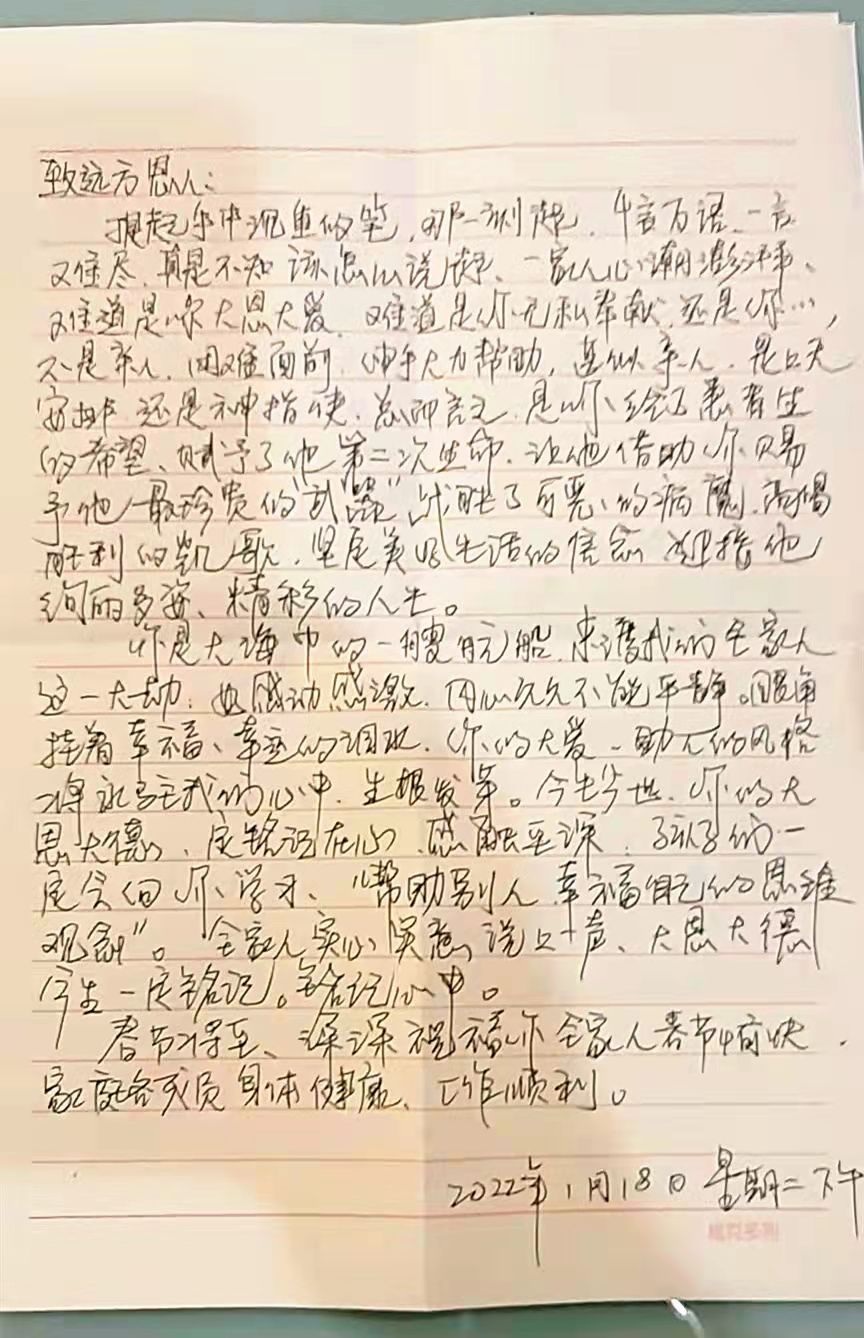 致远方恩人：
提起手中沉重的笔，那一刻起，千言万语、一言
难尽，真是不知该怎么说起、一家人心潮澎湃、
难道是你大恩大爱，难道是你无私奉献，还是你…，
不是亲人，困难面前，伸手大力帮助，甚似亲人，是上天
安排，还是神指使，总而言之，是你给了患者生
的希望、赋予了他第二次生命，让他借助你赐
予他最珍贵的“武器”战胜了可恶的病魔，高唱
胜利的凯歌，坚定美好生活的信念，迎接他
绚丽多姿、精彩的人生。
你是大海中的一艘航船，来渡我们全家人
这一大劫，她感动感激，内心久久不能平静。眼角
挂着幸福、幸运的泪水，你的大爱、助人的风格
将永驻我们心中，生根发芽。今生今世，你的大
恩大德，定铭记在心，感触至深，孩子们一
定会向你学习、“帮助别人，幸福自己的思维
观念”。全家人实心实意，说上一声、大恩大德
今生一定铭记。铭记心中。
春节将至、深深祝福你全家人春节愉快，
家庭各成员身体健康、工作顺利。
2022年1月18日 星期二下午